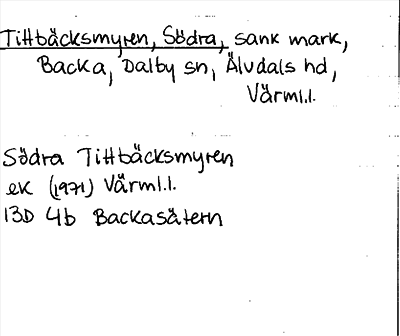 Tittbäcksmyren, Södra, sank mark,
Backa, Dalby sn, Älvdals hd,
Värml.l.
Södra Tittbäcksmyren
ek (1971) Värml.l.
13D 4b Backasätern